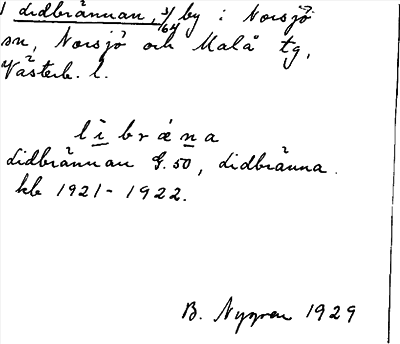 1 Lidbrännan, 5/64 by i Norsjö
sn, Norsjö och Malå tg,
Västerb. l.
lìbræna
Lidbrännan G.50, Lidbränna.
kb 1921-1922.
B. Nygren 1929